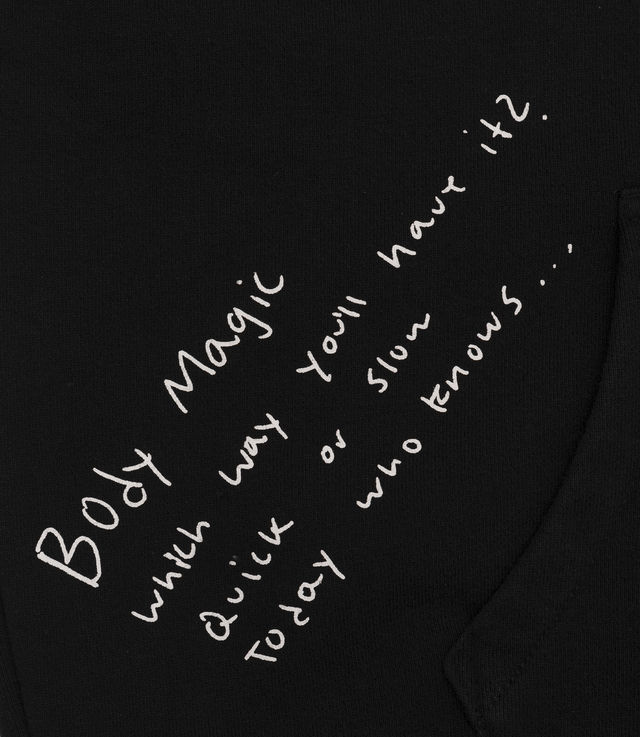 Body Magic
which way you'll have it?
Quick or slow
Today who knows...